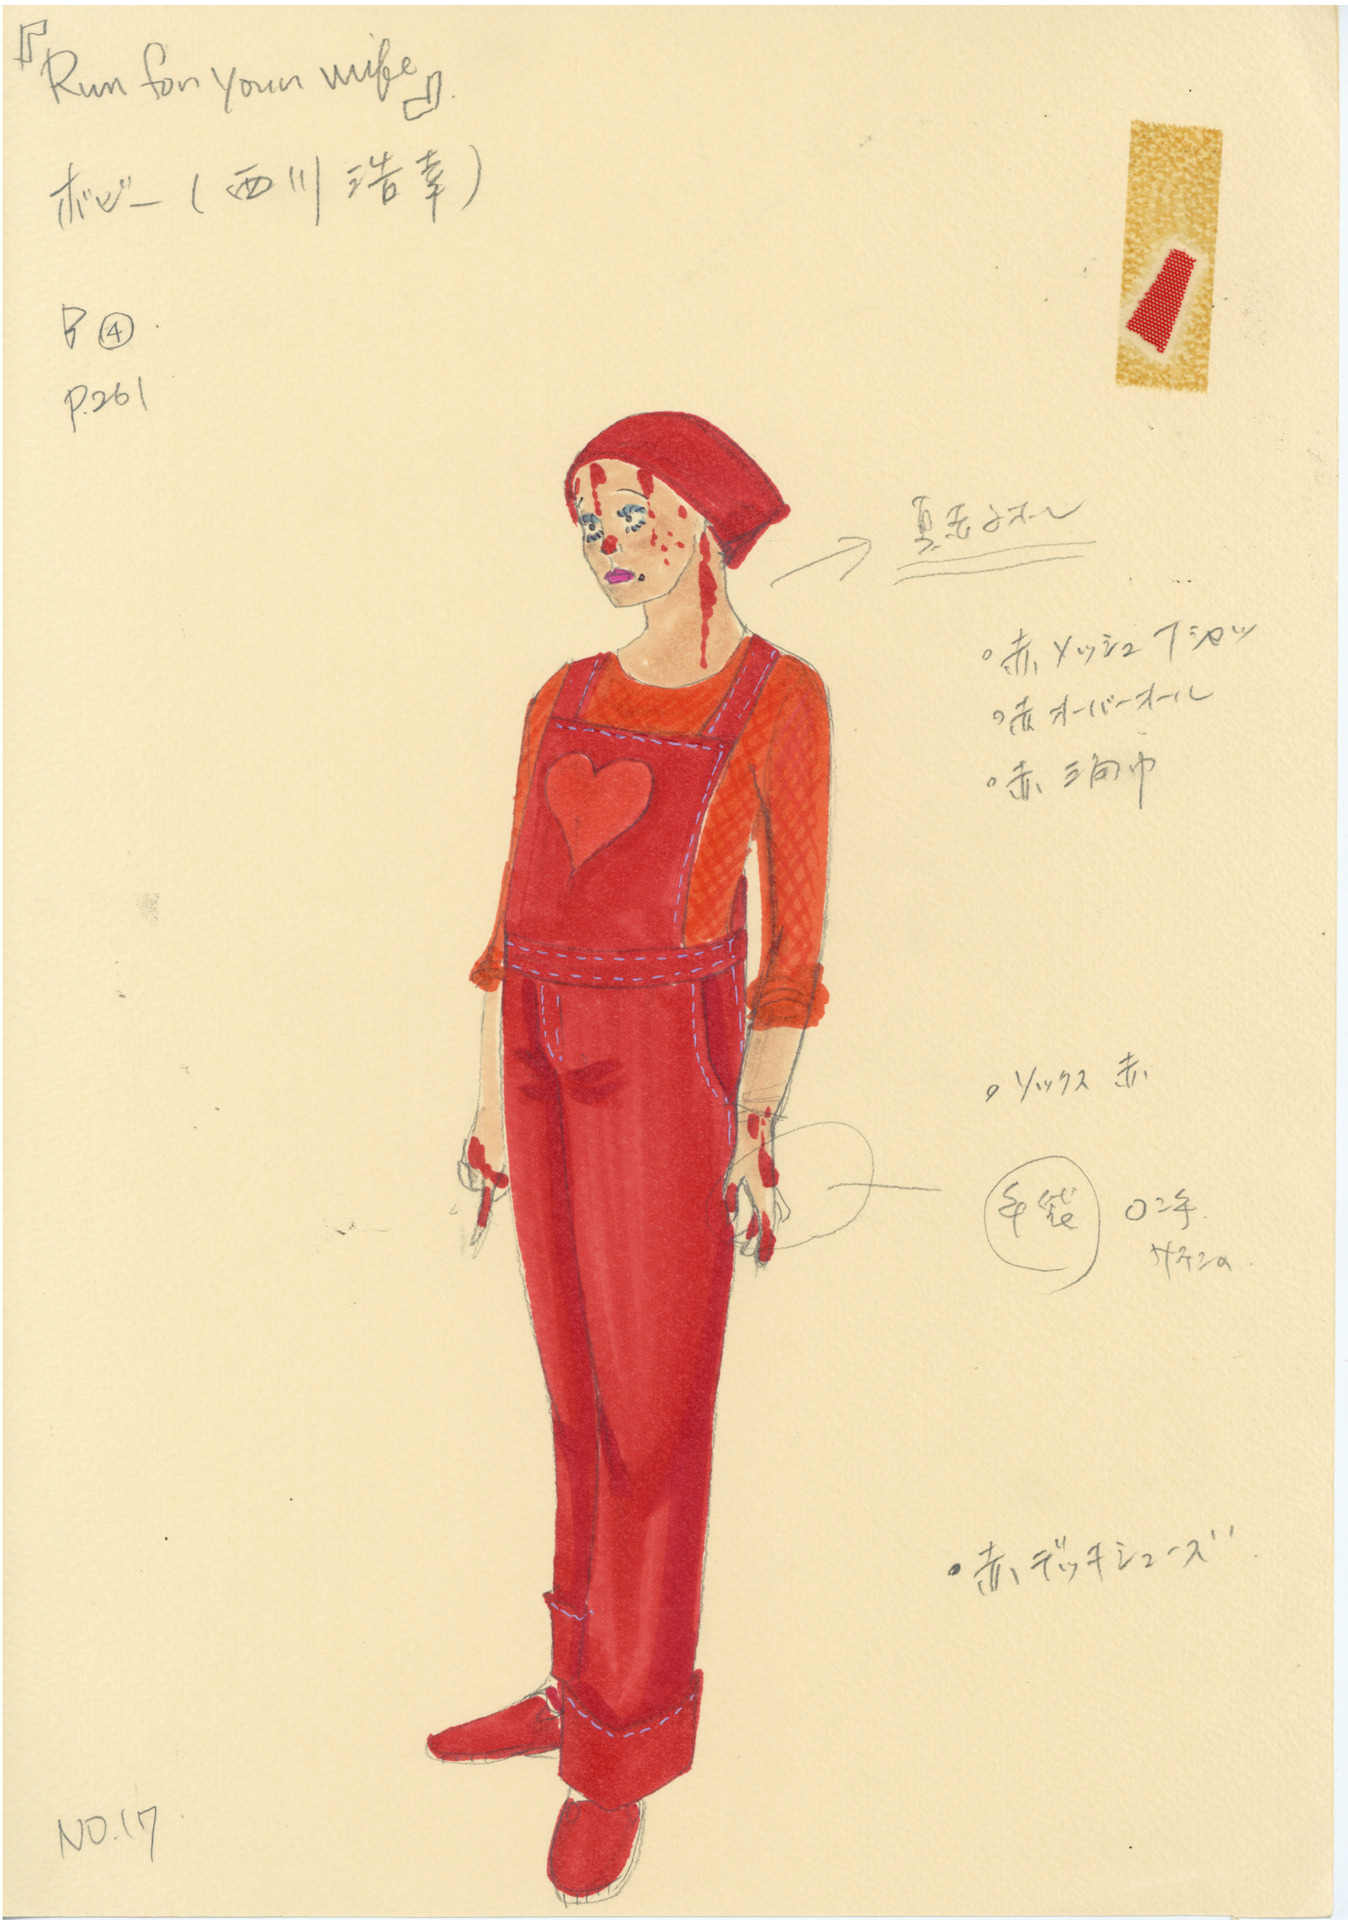 『Run for your wife』
ボビー(西川浩幸)
B ④
P.261
・赤 メッシュ Tシャツ
・赤 オーバーオール
・赤 三角巾
・ソックス 赤
手袋
・赤 デッキシューズ
NO.17